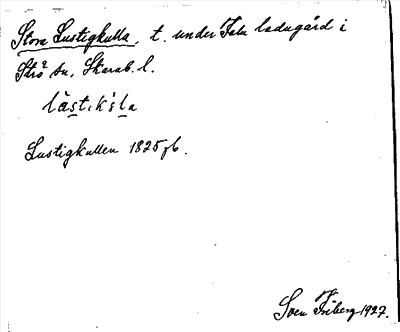 Stora Lustigkulla, t. under Tala ladugård i
Strö sn, Skarab. l.
Lustigkullen 1825 jb.
Sven Friberg 1927.